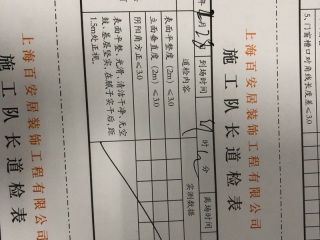 5.门窗槽口对角线长度差≤3.0
上海百安居装饰工程有限公司
施工队长道检表
年 月28 到场时间 时 分 离场时间
道检内容 实测数据
表面平整度(2m)≤3.0
立面垂直度(2m)≤3.0
阴阳角方正≤3.0
表面平整,光滑,清洁干净,无空
鼓,基层坚实,在腻子实干后,距
1.5m处正视,
上海百安居装饰工程有限公司
施工队长道检表